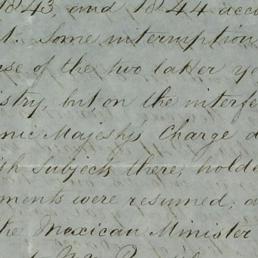 1843 and 1844 acco
t. Some interruption
se of the two latter y
istry, but on the interfe
nic Majesty's Chargé d
sh subjects there, hold
ments were resumed, a
the Mexican Minister